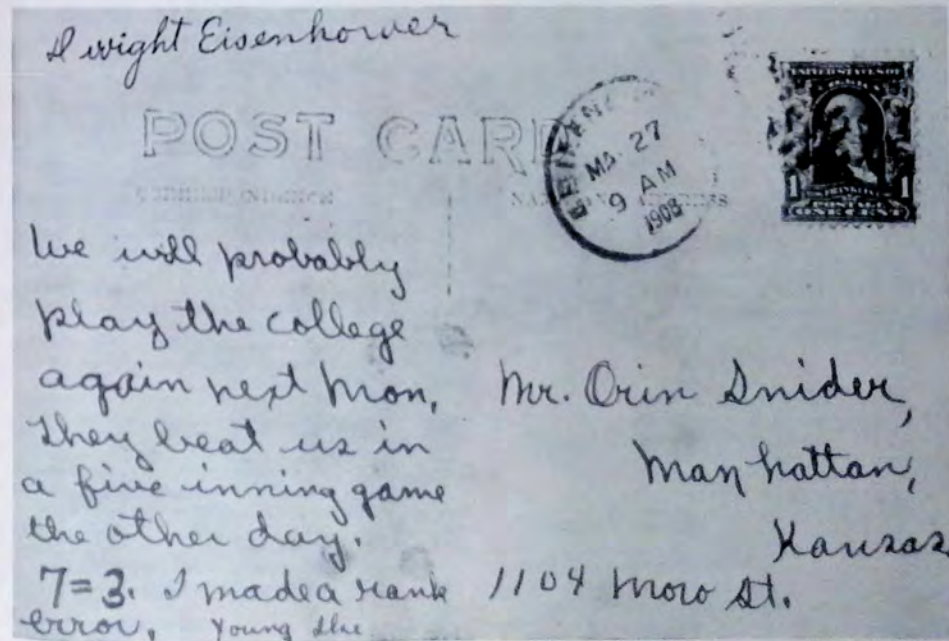 Dwight Eisenhower
POST CARD
CORRESPONDENCE
MA 27
9 AM
1908
UNITED STATES OF
AMERICA
1 FRANKLIN 1
POSTAGE
ONE CENT
We will probably
play the college
again next Mon,
They beat us in
a five inning game
the other day.
7=3. I made a rank
error, Young Ike
Mr. Orin Snider,
Manhattan,
Kansas
1104 Moro St.